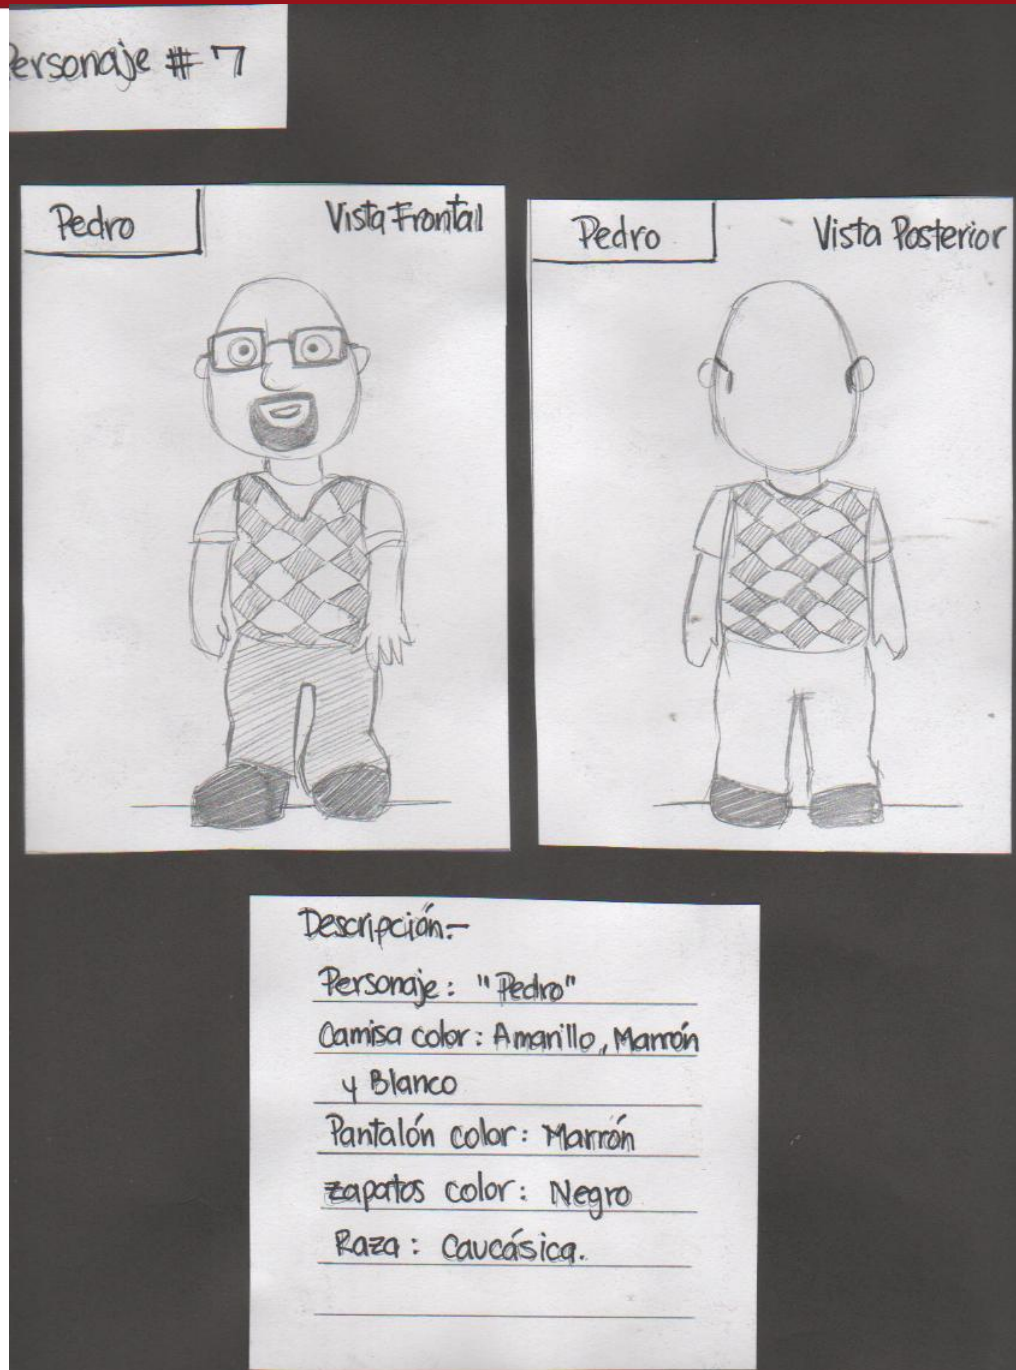 Personaje # 7
Pedro
Vista Frontal
Pedro
Vista Posterior
Descripción:-
Personaje: "Pedro"
Camisa color: Amarillo, Marrón
y Blanco
Pantalón color: Marrón
zapatos color: Negro
Raza: Caucásica.